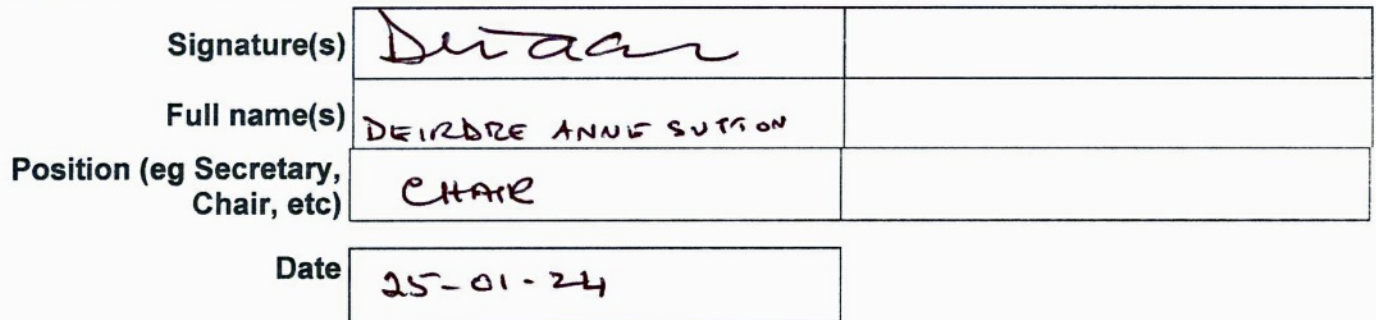 Signature(s)
Full name(s) DEIRDRE ANNE SUTTON
Position (eg Secretary,
Chair, etc) CHAIR
Date 25-01-24